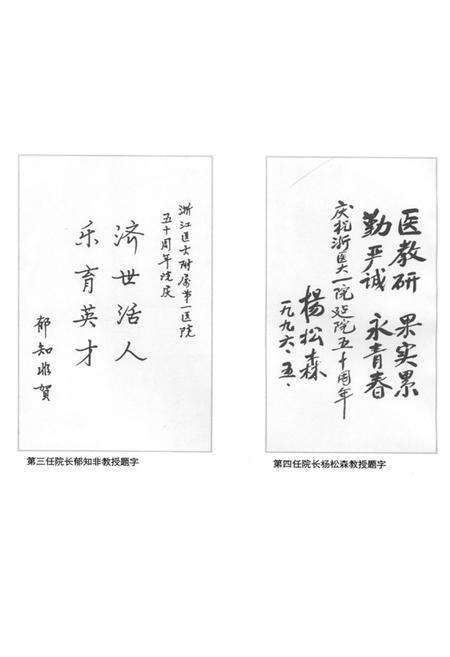 浙江医大附属第一医院
五十周年院庆
济世活人
乐育英才
郁知非贺
第三任院长郁知非教授题字
医教研 果实累
勤严诚 永青春
庆祝浙医大一院建院五十周年
楊松森
一九九六.五.
第四任院长杨松森教授题字